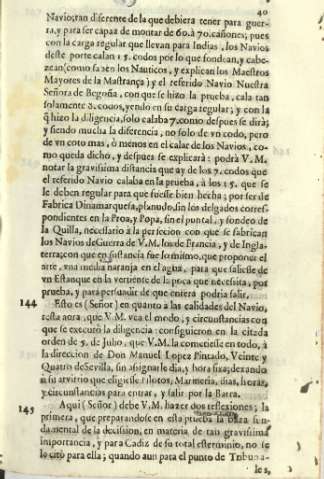 40
Navio; tan diferente de la que debiera tener para guer-
ra, y para ser capaz de montar de 60. à 70. cañones; pues
con la carga regular que llevan para Indias, los Navios
deste porte calan 15. codos por lo que fondean, y cabe-
zean (como saben los Nauticos, y explican los Maestros
Mayores de la Mastrança) y el referido Navio Nuestra
Señora de Begoña, con que se hizo la prueba, cala tan
solamente 8. codos, yendo en su carga regular; y con la
q̃ hizo la diligencia, solo calaba 7. como despues se dirà;
y siendo mucha la diferencia, no solo de vn codo, pero
de vn coto mas, ò menos en el calar de los Navios, co-
mo queda dicho, y despues se explicarà: podrà V.M.
notar la gravissima distancia que ay de los 7. codos que
el referido Navio calaba en la prueba, à los 15. que se
le deben regular para que fuesse bien hecha; por ser de
Fabrica Dinamarquesa, planudo, sin los delgados corres-
pondientes en la Proa, y Popa, sin el puntal, y fondeo de
la Quilla, necessario à la perfecion con que se fabrican
los Navios de Guerra de V.M. los de Francia, y de Ingla-
terra; con que en sustancia fue lo mismo, que proponer el
arte, vna media naranja en el agua, para que saliesse de
vn Estanque en la vertiente de la poca que necesita, por
prueba, y para persuadir de que entera podria salir.
144 Esto es (Señor) en quanto à las calidades del Navio,
resta aora, que V.M. vea el modo, y circunstancias con
que se executò la diligencia: consiguieron en la citada
orden de 5. de Julio, que V.M. la cometiesse en todo, à
la direccion de Don Manuel Lopez Pintado, Veinte y
Quatro de Sevilla, sin asignarle dia, y hora fixa; dexando
à su arvitrio que eligiesse Pilotos, Marineria, dias, horas,
y circunstancias para entrar, y salir por la Barra.
145 Aqui (Señor) debe V.M. hazer dos reflexiones; la
primera, que preparandose en esta prueba la baza fun-
damental de la decission, en materia de tan gravissima
importancia, y para Cadiz de su total esterminio, no se
lo citò para ella; quando aun para el punto de Tribuna-
les,